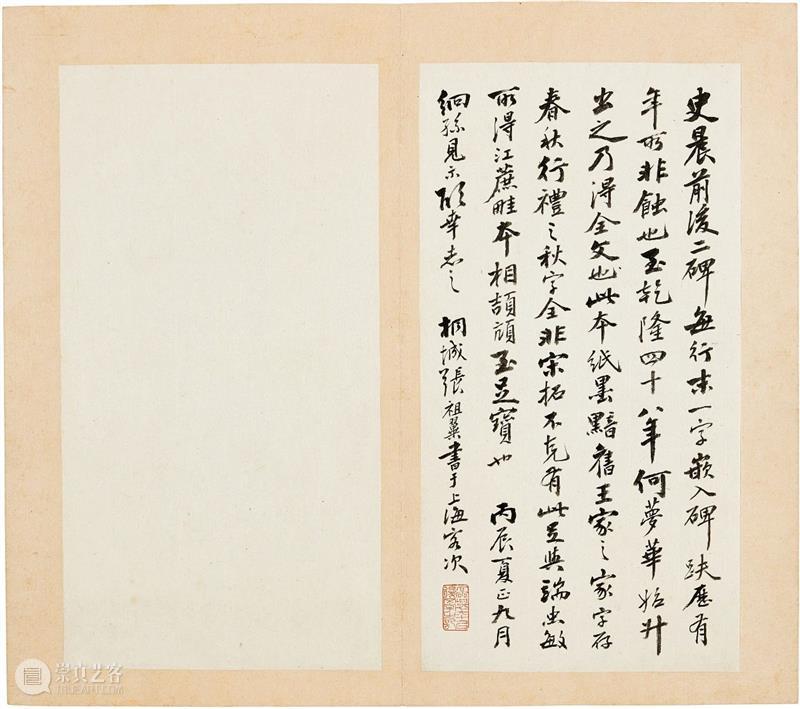 史晨前後二碑每行末一字嵌入碑趺歷有
年所非蝕也至乾隆四十八年何夢華始升
出之乃得全文也此本紙墨黯舊王家之家字存
春秋行禮之秋字全非宋拓不克有此足與端忠敏
所得江蔗畦本相頡頏至足寶也 丙辰夏正九月
絅孫見示欣幸志之 桐城張祖翼書于上海客次
崇真艺客
TRUEART.COM